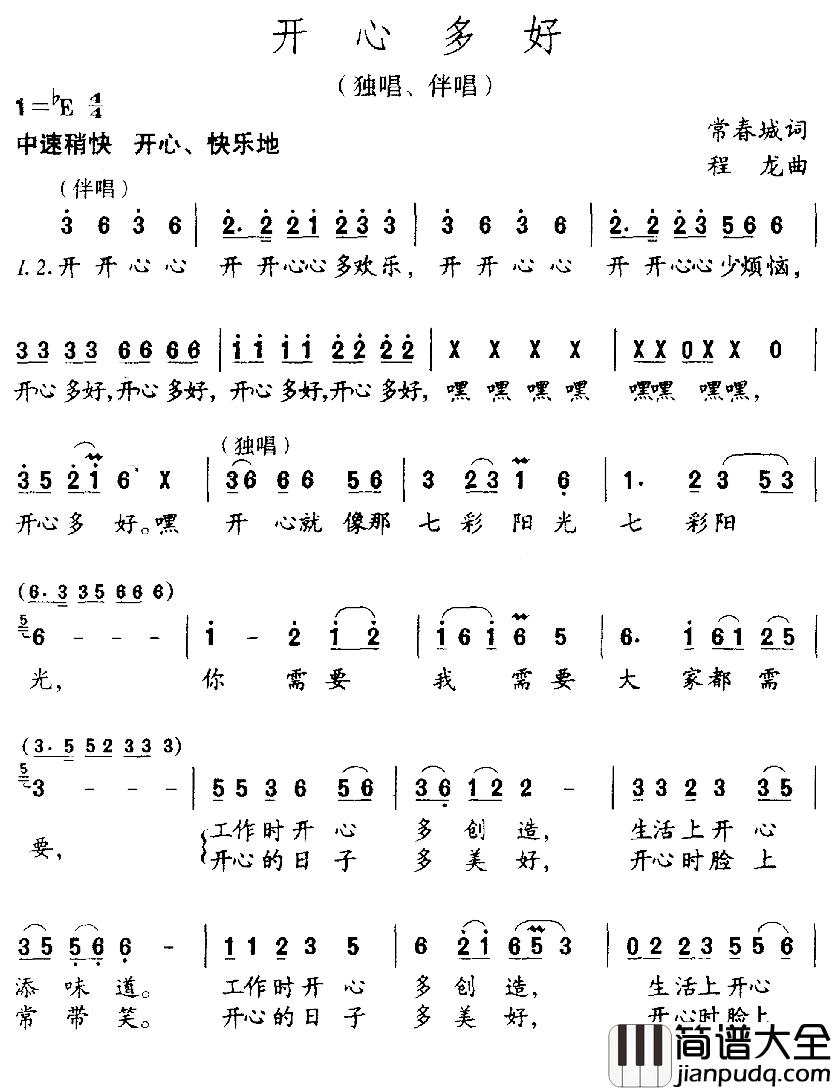 开心多好
（独唱、伴唱）
1=♭E 4/4
中速稍快 开心、快乐地
常春城词
程 龙曲
（伴唱）
3 6 3 6 | 2. 2 2 1 2 3 3 | 3 6 3 6 | 2. 2 2 3 5 6 6
1. 2. 开 开 心 心 开 开心心多欢乐， 开 开 心 心 开 开心心少烦恼，
3 3 3 3 6 6 6 6 | 1 1 1 1 2 2 2 2 | X X X X | X X 0 X X 0
开心多好，开心多好， 开心多好，开心多好， 嘿 嘿 嘿 嘿 嘿嘿 嘿嘿，
（独唱）
3 5 2 1 6 X | 3 6 6 6 5 6 | 3 2 3 1 6 | 1. 2 3 5 3
开心多 好。嘿 开 心就 像那 七 彩 阳 光 七 彩阳
(6. 3 3 5 6 6 6)
5 6 - - - | 1 - 2 1 2 | 1 6 1 6 5 | 6. 1 6 1 2 5
光， 你 需 要 我 需 要 大 家都 需
(3. 5 5 2 3 3 3)
5 3 - - - | 5 5 3 6 5 6 | 3 6 1 2 2 - | 3 3 2 3 3 5
要， 工作时开 心 多 创 造， 生活上开 心
开心的日 子 多 美 好， 开心时脸 上
3 5 5 6 6 - | 1 1 2 3 5 | 6 2 1 6 5 3 | 0 2 2 3 5 5 6
添 味 道。 工作时开 心 多 创 造， 生活上开心
常 带 笑。 开心的日 子 多 美 好， 开心时脸上
简谱大全
jianpudq.com